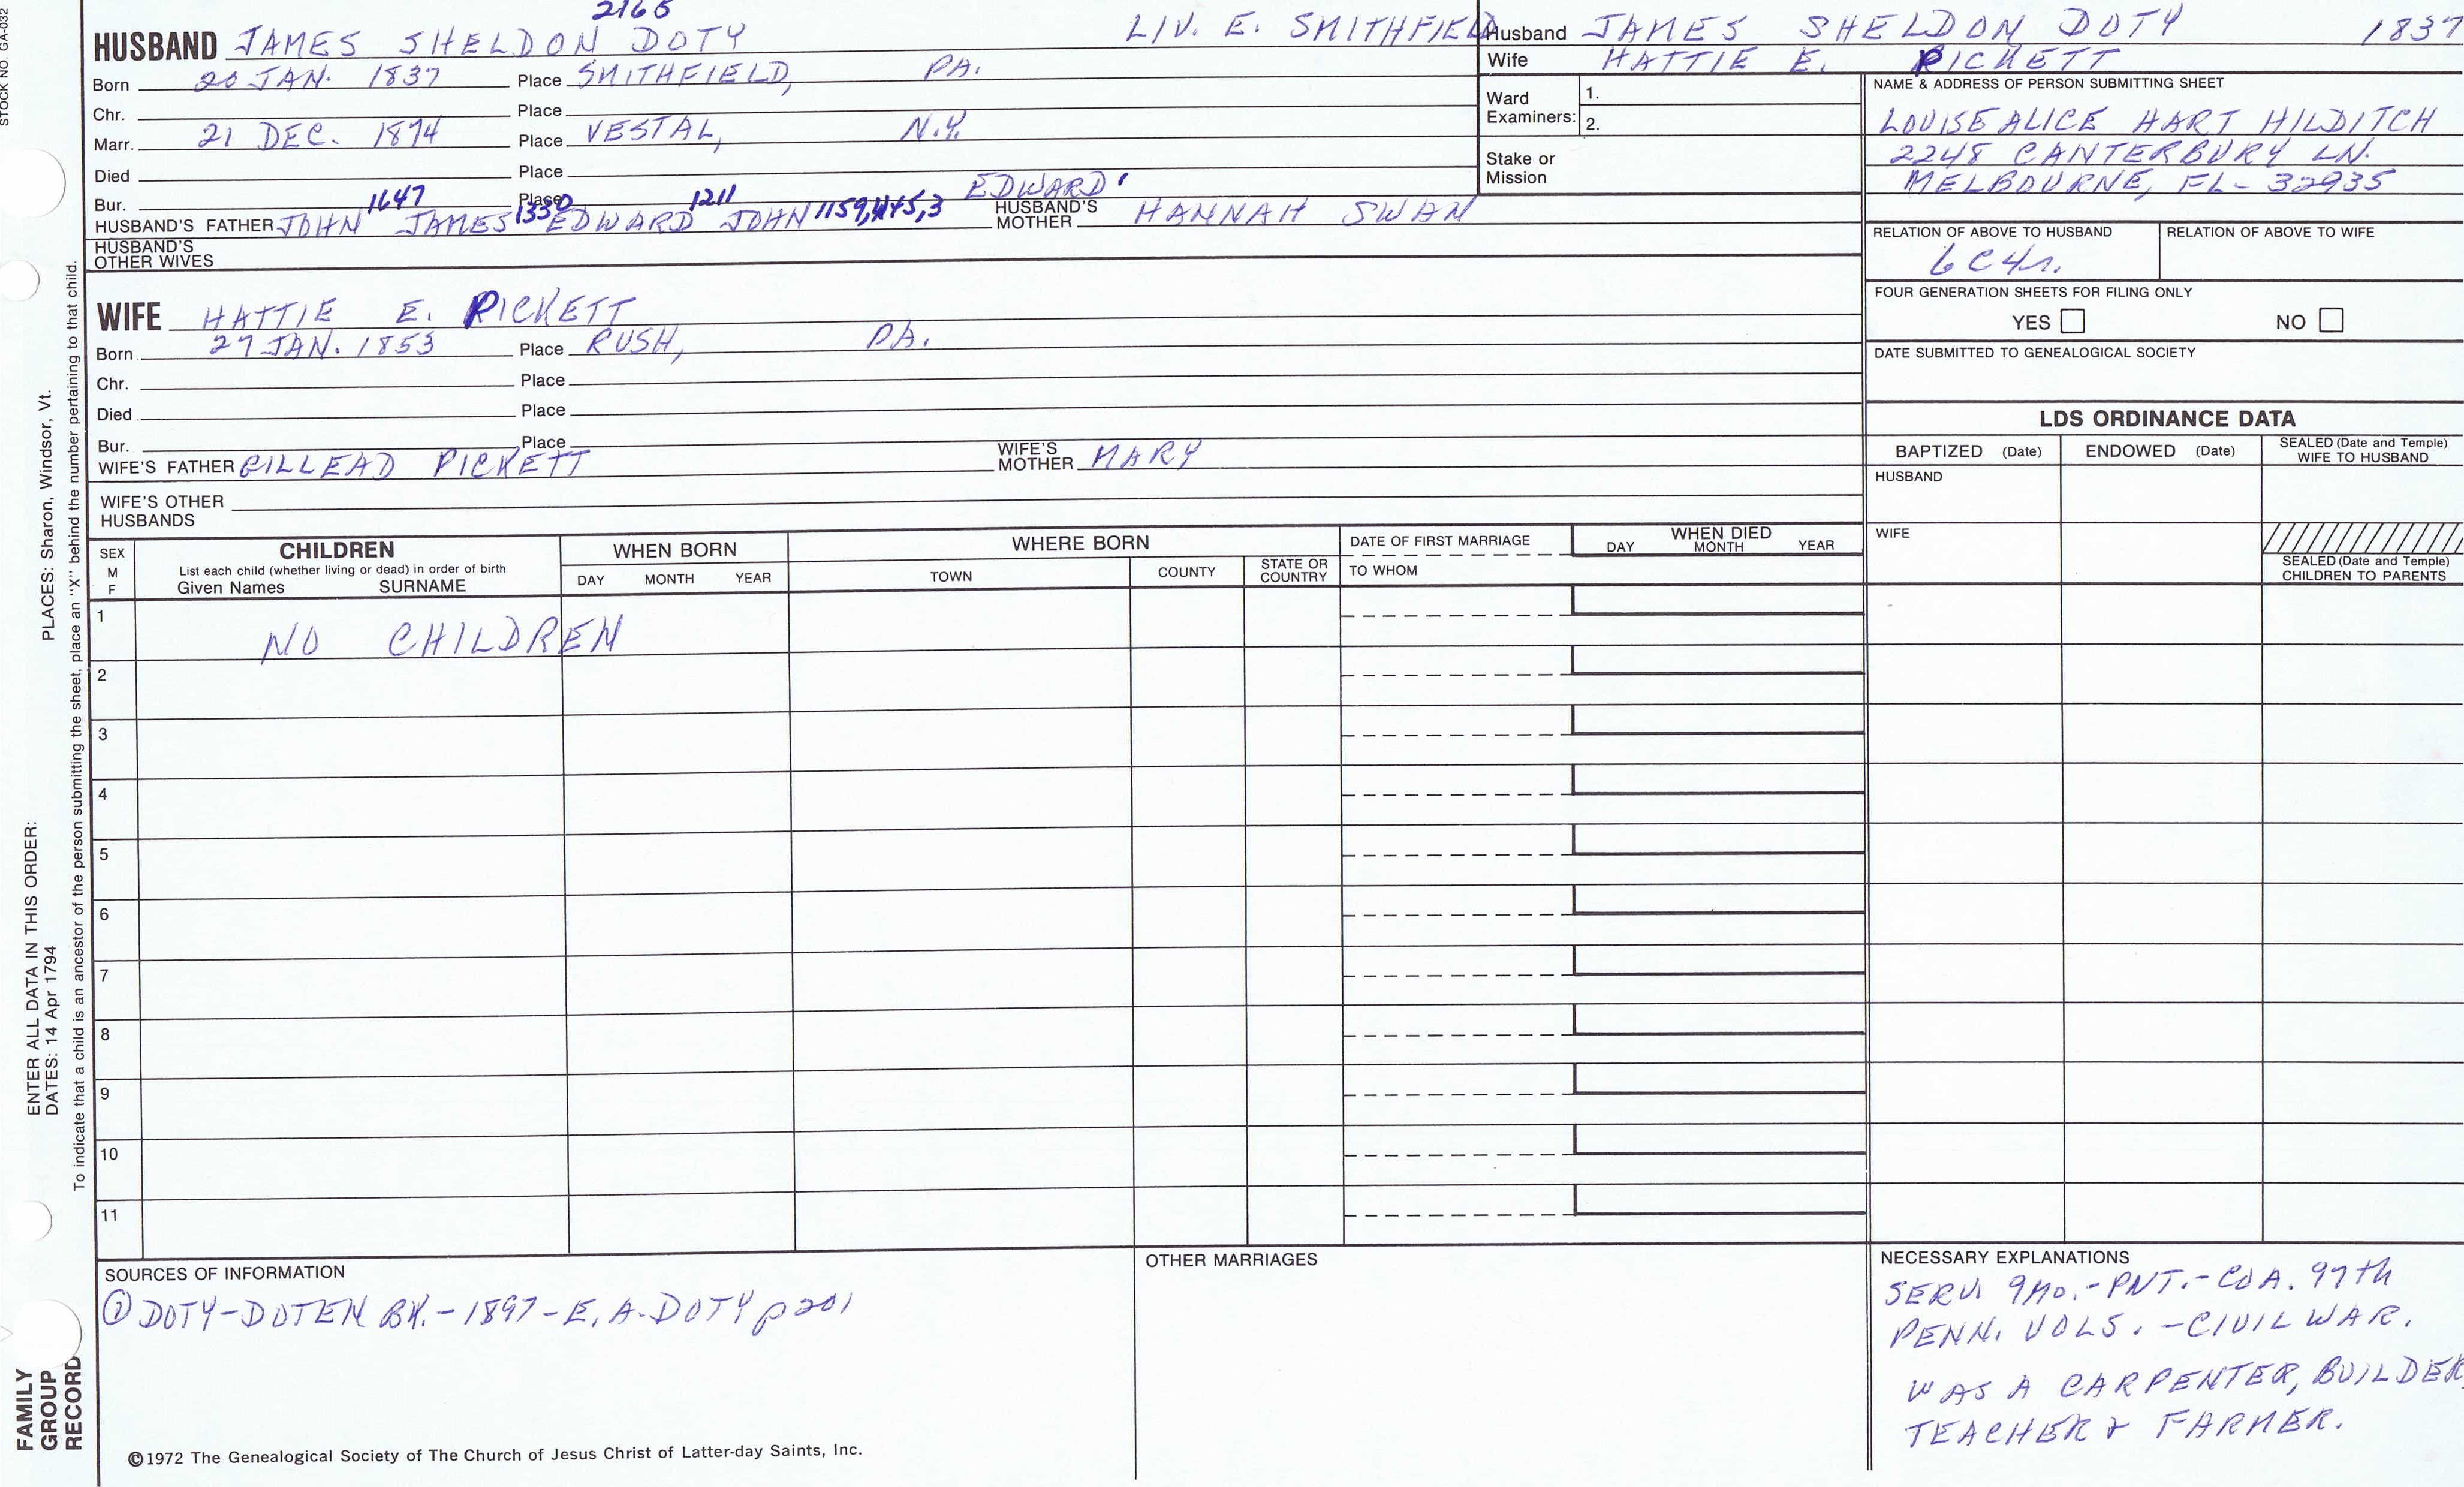 STOCK NO. GA-032
2165
HUSBAND JAMES SHELDON DOTY LIV. E. SMITHFIELD
Born 20 JAN. 1837 Place SMITHFIELD, PA.
Chr. Place
Marr. 21 DEC. 1874 Place VESTAL, N.Y.
Died Place
Bur. Place
1647 1330 1211 EDWARD'
HUSBAND'S FATHER JOHN JAMES EDWARD JOHN HUSBAND'S MOTHER HANNAH SWAN
HUSBAND'S OTHER WIVES
WIFE HATTIE E. PICKETT
Born 27 JAN. 1853 Place RUSH, PA.
Chr. Place
Died Place
Bur. Place
WIFE'S FATHER GILLEAD PICKETT WIFE'S MOTHER MARY
WIFE'S OTHER HUSBANDS
Husband JAMES SHELDON DOTY 1837
Wife HATTIE E. PICKETT
Ward Examiners: 1.
2.
Stake or Mission
NAME & ADDRESS OF PERSON SUBMITTING SHEET
LOUISE ALICE HART HILDITCH
2248 CANTERBURY LN.
MELBOURNE, FL - 32935
RELATION OF ABOVE TO HUSBAND RELATION OF ABOVE TO WIFE
6C4r.
FOUR GENERATION SHEETS FOR FILING ONLY
YES NO
DATE SUBMITTED TO GENEALOGICAL SOCIETY
LDS ORDINANCE DATA
BAPTIZED (Date) ENDOWED (Date) SEALED (Date and Temple) WIFE TO HUSBAND
HUSBAND
WIFE
SEALED (Date and Temple) CHILDREN TO PARENTS
SEX M F
CHILDREN
List each child (whether living or dead) in order of birth
Given Names SURNAME
WHEN BORN
DAY MONTH YEAR
WHERE BORN
TOWN COUNTY STATE OR COUNTRY
DATE OF FIRST MARRIAGE
TO WHOM
WHEN DIED
DAY MONTH YEAR
1 NO CHILDREN
2
3
4
5
6
7
8
9
10
11
SOURCES OF INFORMATION
① DOTY-DOTEN BK.-1897-E.A. DOTY p201
OTHER MARRIAGES
NECESSARY EXPLANATIONS
SERV. 9 MO.-PVT.-CO A. 97th
PENN. VOLS. -CIVIL WAR.
WAS A CARPENTER, BUILDER,
TEACHER & FARMER.
©1972 The Genealogical Society of The Church of Jesus Christ of Latter-day Saints, Inc.
FAMILY
GROUP
RECORD
ENTER ALL DATA IN THIS ORDER:
DATES: 14 Apr 1794
PLACES: Sharon, Windsor, Vt.
To indicate that a child is an ancestor of the person submitting the sheet, place an "X" behind the number pertaining to that child.